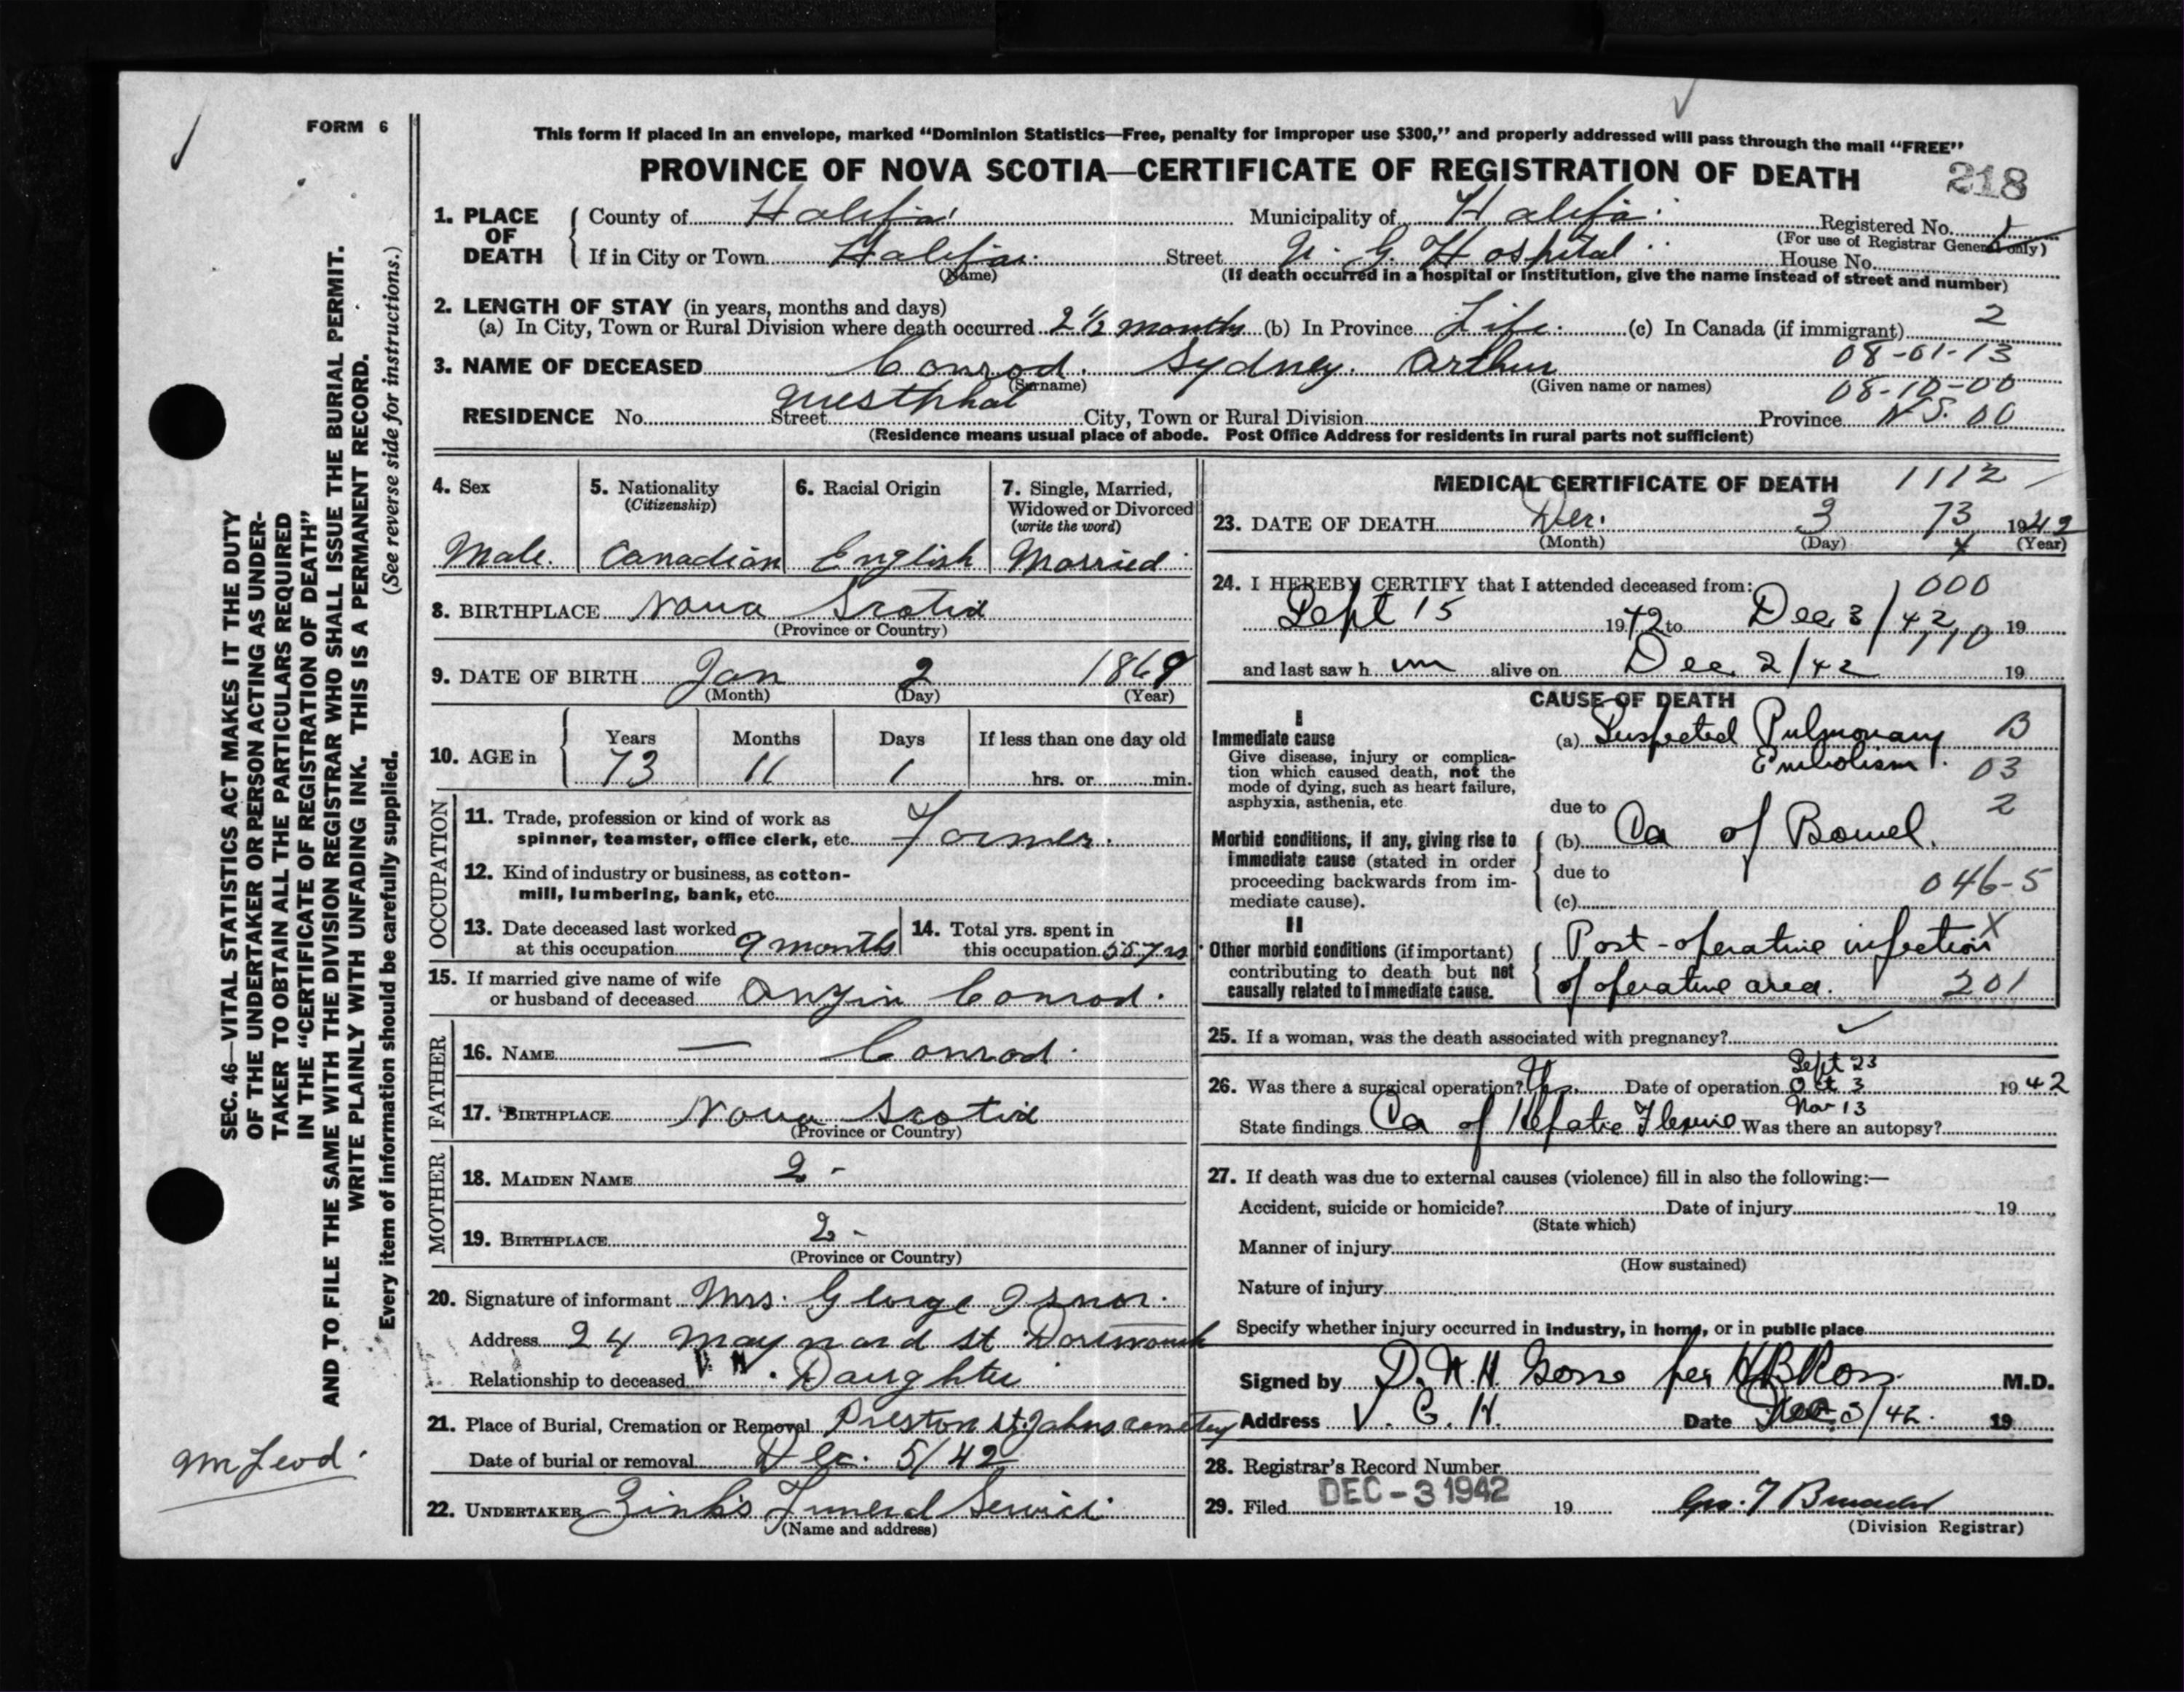 FORM 6
This form if placed in an envelope, marked “Dominion Statistics—Free, penalty for improper use $300,” and properly addressed will pass through the mail “FREE”
PROVINCE OF NOVA SCOTIA—CERTIFICATE OF REGISTRATION OF DEATH
218
1. PLACE OF DEATH
County of Halifax Municipality of Halifax Registered No.
(For use of Registrar General only)
If in City or Town Halifax Street V. G. Hospital House No.
(Name) (If death occurred in a hospital or institution, give the name instead of street and number)
2. LENGTH OF STAY (in years, months and days)
(a) In City, Town or Rural Division where death occurred 2 1/2 months (b) In Province Life. (c) In Canada (if immigrant) 2
08-01-13
3. NAME OF DECEASED Conrod. Sydney. Arthur
(Surname) (Given name or names) 08-10-00
RESIDENCE No. Street Westphal City, Town or Rural Division Province N.S. 00
(Residence means usual place of abode. Post Office Address for residents in rural parts not sufficient)
4. Sex
Male.
5. Nationality
(Citizenship)
Canadian
6. Racial Origin
English
7. Single, Married,
Widowed or Divorced
(write the word)
Married
8. BIRTHPLACE Nova Scotia
(Province or Country)
9. DATE OF BIRTH Jan 2 1869
(Month) (Day) (Year)
10. AGE in
Years Months Days If less than one day old
73 11 1 hrs. or min.
OCCUPATION
11. Trade, profession or kind of work as
spinner, teamster, office clerk, etc. Farmer.
12. Kind of industry or business, as cotton-
mill, lumbering, bank, etc.
13. Date deceased last worked
at this occupation 9 months
14. Total yrs. spent in
this occupation 55 yrs
15. If married give name of wife
or husband of deceased Conrod.
FATHER
16. NAME — Conrod.
17. BIRTHPLACE Nova Scotia
(Province or Country)
MOTHER
18. MAIDEN NAME 2 -
19. BIRTHPLACE 2 -
(Province or Country)
20. Signature of informant Mrs. George Isnor.
Address 24 Maynard St Dartmouth
Relationship to deceased Daughter
21. Place of Burial, Cremation or Removal Preston St Johns cemetery
Date of burial or removal Dec. 5/42
22. UNDERTAKER Zink's Funeral Service.
(Name and address)
MEDICAL CERTIFICATE OF DEATH 1112
23. DATE OF DEATH Dec. 3 73 1942
(Month) (Day) 4 (Year)
24. I HEREBY CERTIFY that I attended deceased from: 000
Sept 15 1942 to Dec 3/42 19
110
and last saw h im alive on Dec 2/42 19
CAUSE OF DEATH
I
Immediate cause
Give disease, injury or complica-
tion which caused death, not the
mode of dying, such as heart failure,
asphyxia, asthenia, etc
(a) Suspected Pulmonary B
Embolism. 03
due to 2
Morbid conditions, if any, giving rise to
immediate cause (stated in order
proceeding backwards from im-
mediate cause).
(b) Ca of Bowel.
due to
046-5
(c)
II
Other morbid conditions (if important)
contributing to death but not
causally related to immediate cause.
Post-operative infection X
of operative area. 201
25. If a woman, was the death associated with pregnancy?
26. Was there a surgical operation? Yes. Date of operation Sept 23
Oct 3 1942
Nov 13
State findings Ca of Hepatic Flexure Was there an autopsy?
27. If death was due to external causes (violence) fill in also the following:—
Accident, suicide or homicide? Date of injury 19
(State which)
Manner of injury
(How sustained)
Nature of injury
Specify whether injury occurred in industry, in home, or in public place
Signed by per M.D.
Address V. G. H. Date Dec 3/42. 19
28. Registrar's Record Number
29. Filed DEC -3 1942 19
(Division Registrar)
SEC. 46—VITAL STATISTICS ACT MAKES IT THE DUTY
OF THE UNDERTAKER OR PERSON ACTING AS UNDER-
TAKER TO OBTAIN ALL THE PARTICULARS REQUIRED
IN THE “CERTIFICATE OF REGISTRATION OF DEATH”
AND TO FILE THE SAME WITH THE DIVISION REGISTRAR WHO SHALL ISSUE THE BURIAL PERMIT.
WRITE PLAINLY WITH UNFADING INK. THIS IS A PERMANENT RECORD.
Every item of information should be carefully supplied. (See reverse side for instructions.)
McLeod.